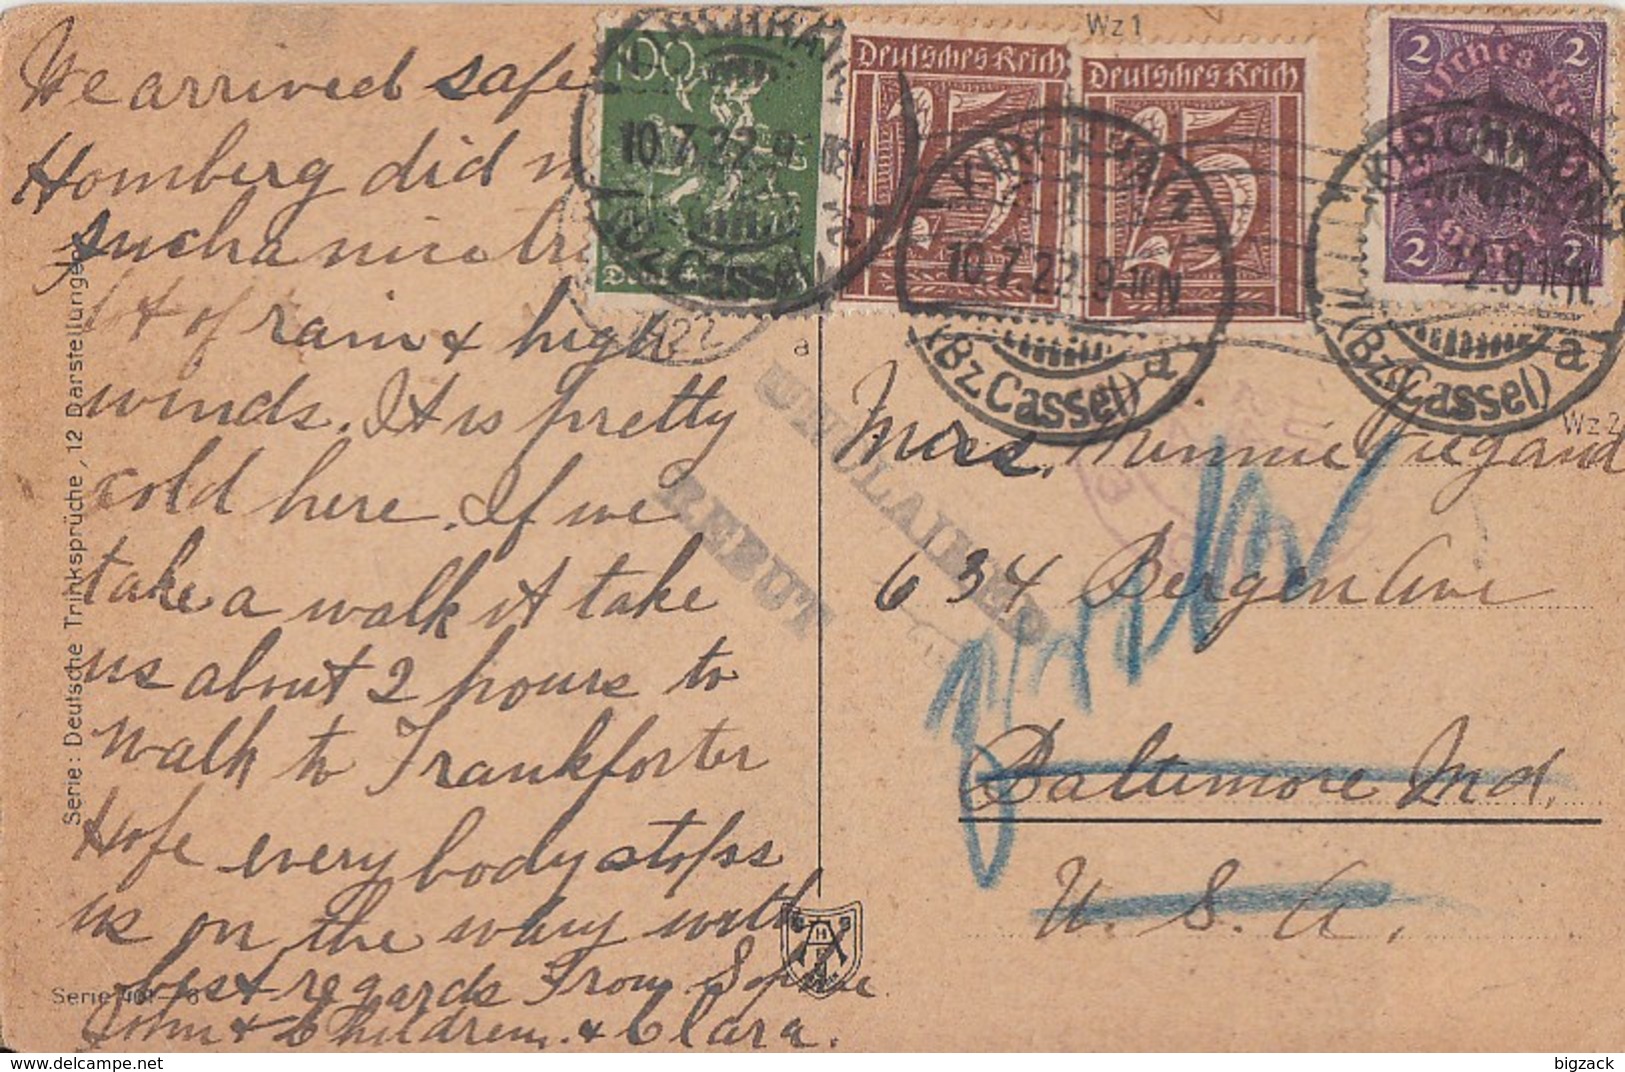 We arrived safe
Homberg did n
such a nice tri
lot of rain & high
winds. It is pretty
cold here. If we
take a walk it take
us about 2 hours to
walk to Frankforter
Hofe every body stops
us on the way with
best regards From Sophie
John & Children. & Clara.
Serie: Deutsche Trinksprüche, 12 Darstellungen
Serie
100
10.7.22.9
(Bz.Cassel)
Deutsches Reich
75
Deutsches Reich
75
Wz 1
KIRCHHAIN
10.7.22.9-10N
(Bz.Cassel) a
2 2
2 2
KIRCHHAIN
22.9-10N
(Bz.Cassel) a
Wz 2
a
UNCLAIMED
REBUT
Miss. Minnie Wiegand
634 Bergen Ave
Baltimore Md.
U. S. A.
bigzack